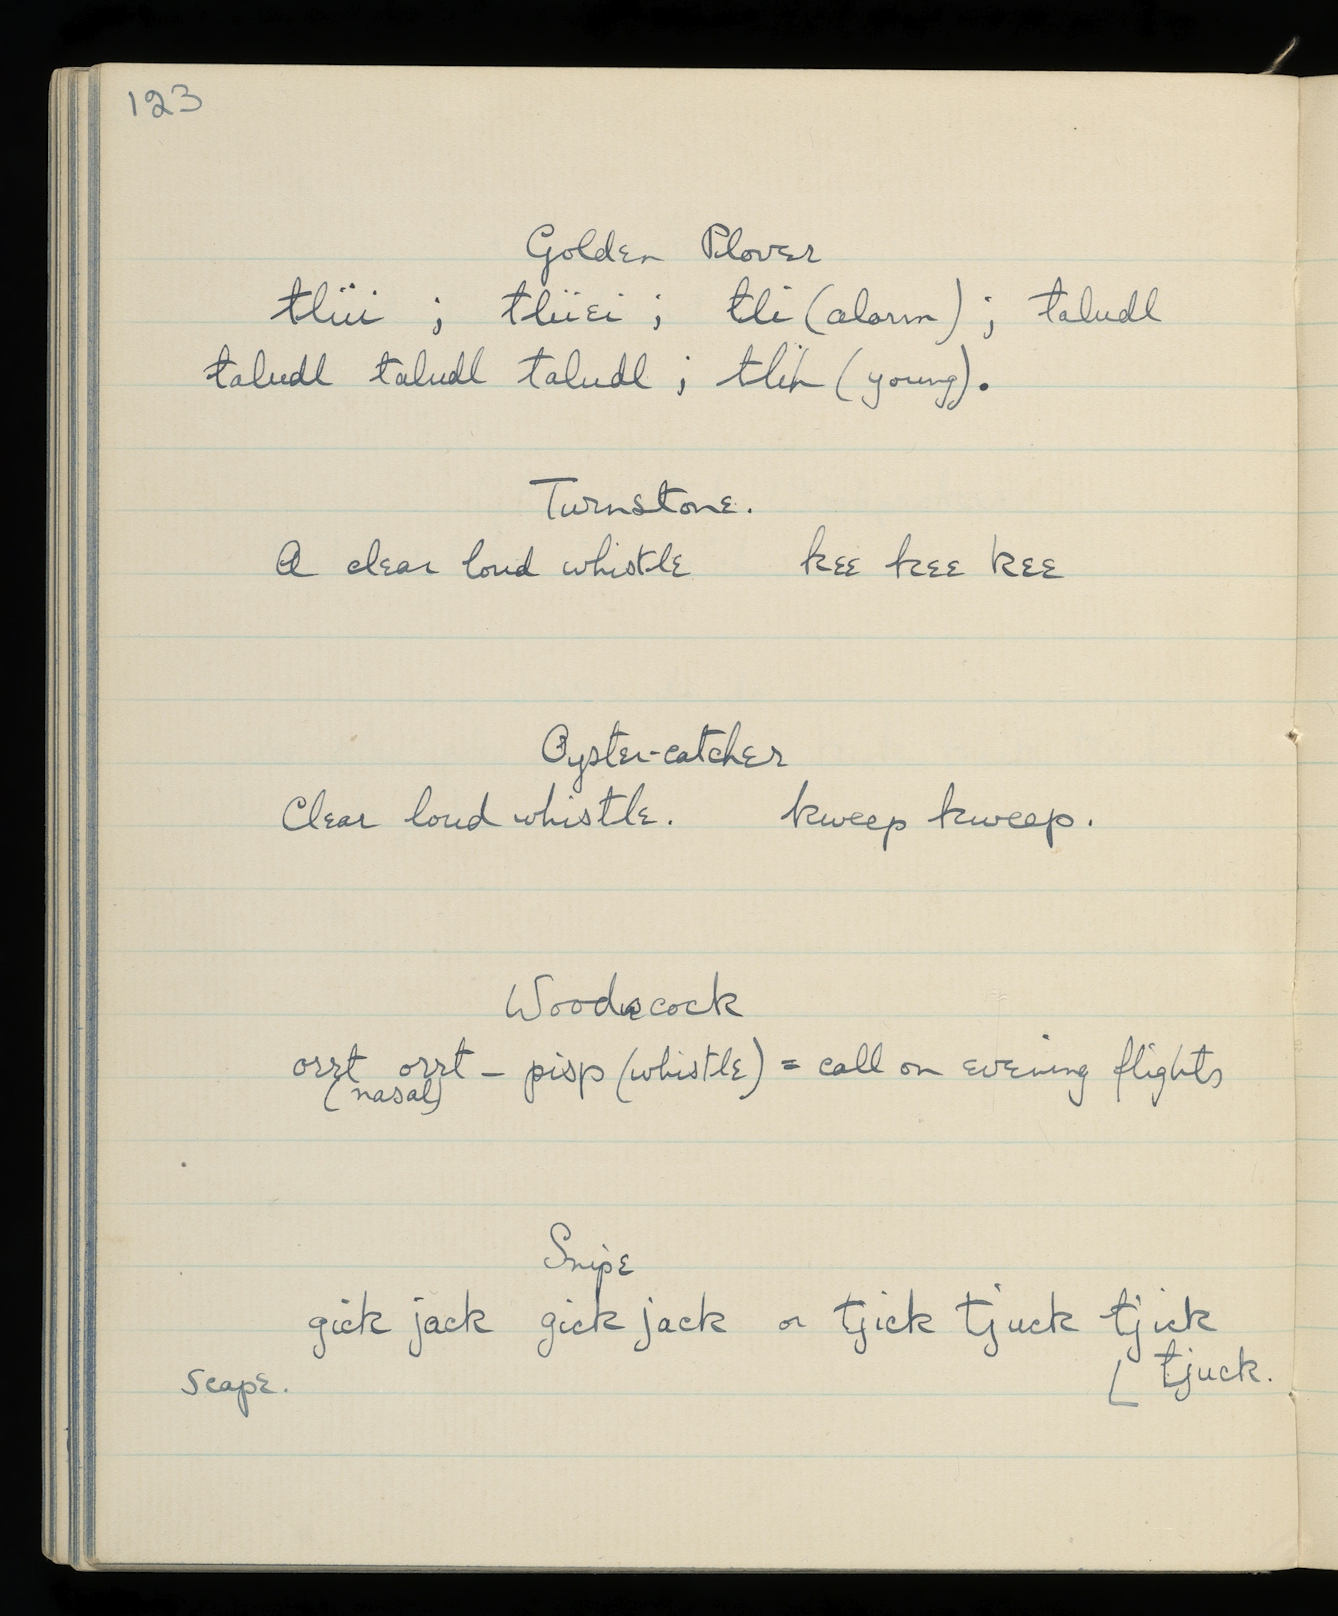 123
Golden Plover
tlüi ; tlüei ; tli (alarm) ; taludl
taludl taludl taludl ; tlih (young).
Turnstone.
A clear loud whistle kee kee kee
Oyster-catcher
Clear loud whistle. kweep kweep.
Woodcock
orrt orrt – pisp (whistle) = call on evening flights
(nasal)
Snipe
gick jack gick jack or tjick tjuck tjick
tjuck.
scape.